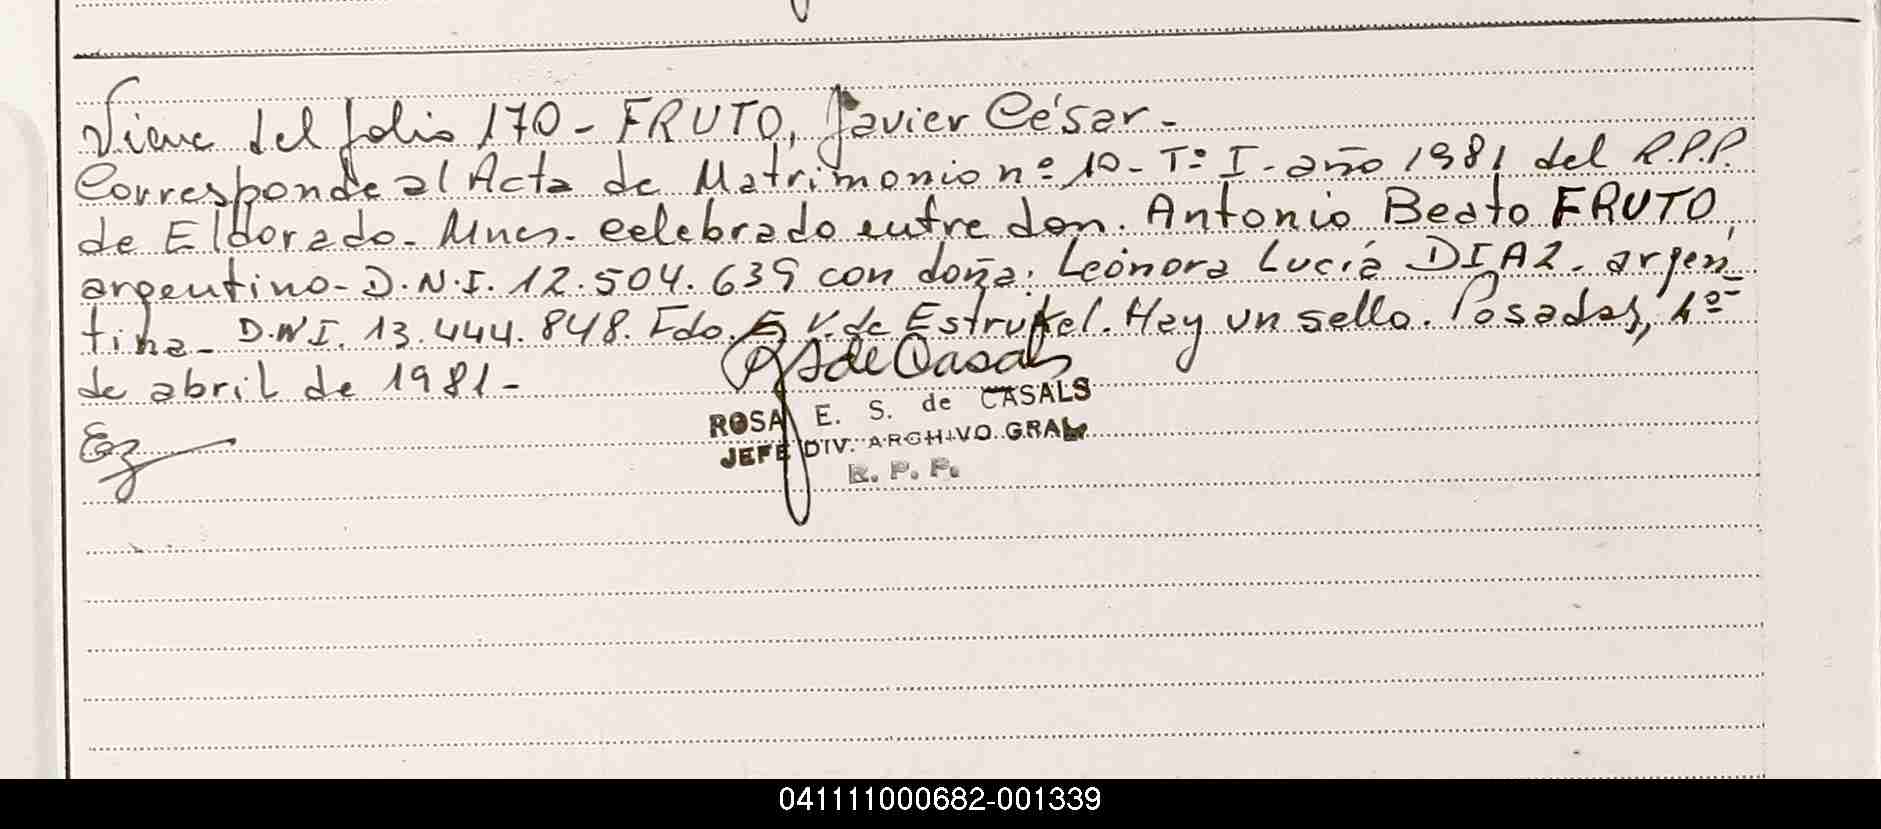 Viene del folio 170 - FRUTO, Javier César -
Corresponde al Acta de Matrimonio nº 10 - Tº I - año 1981 del R.P.P.
de Eldorado - Mnes. celebrado entre don. Antonio Beato FRUTO,
argentino - D.N.I. 12.504.639 con doña: Leonora Lucía DIAZ - argen
tina - D.N.I. 13.444.848. Fdo. E V. de Estrukel. Hay un sello. Posadas, 1º
de abril de 1981 -
R S de Casals
ROSA E. S. de CASALS
JEFE DIV. ARCHIVO GRAL.
R. P. P.
Ez
041111000682-001339